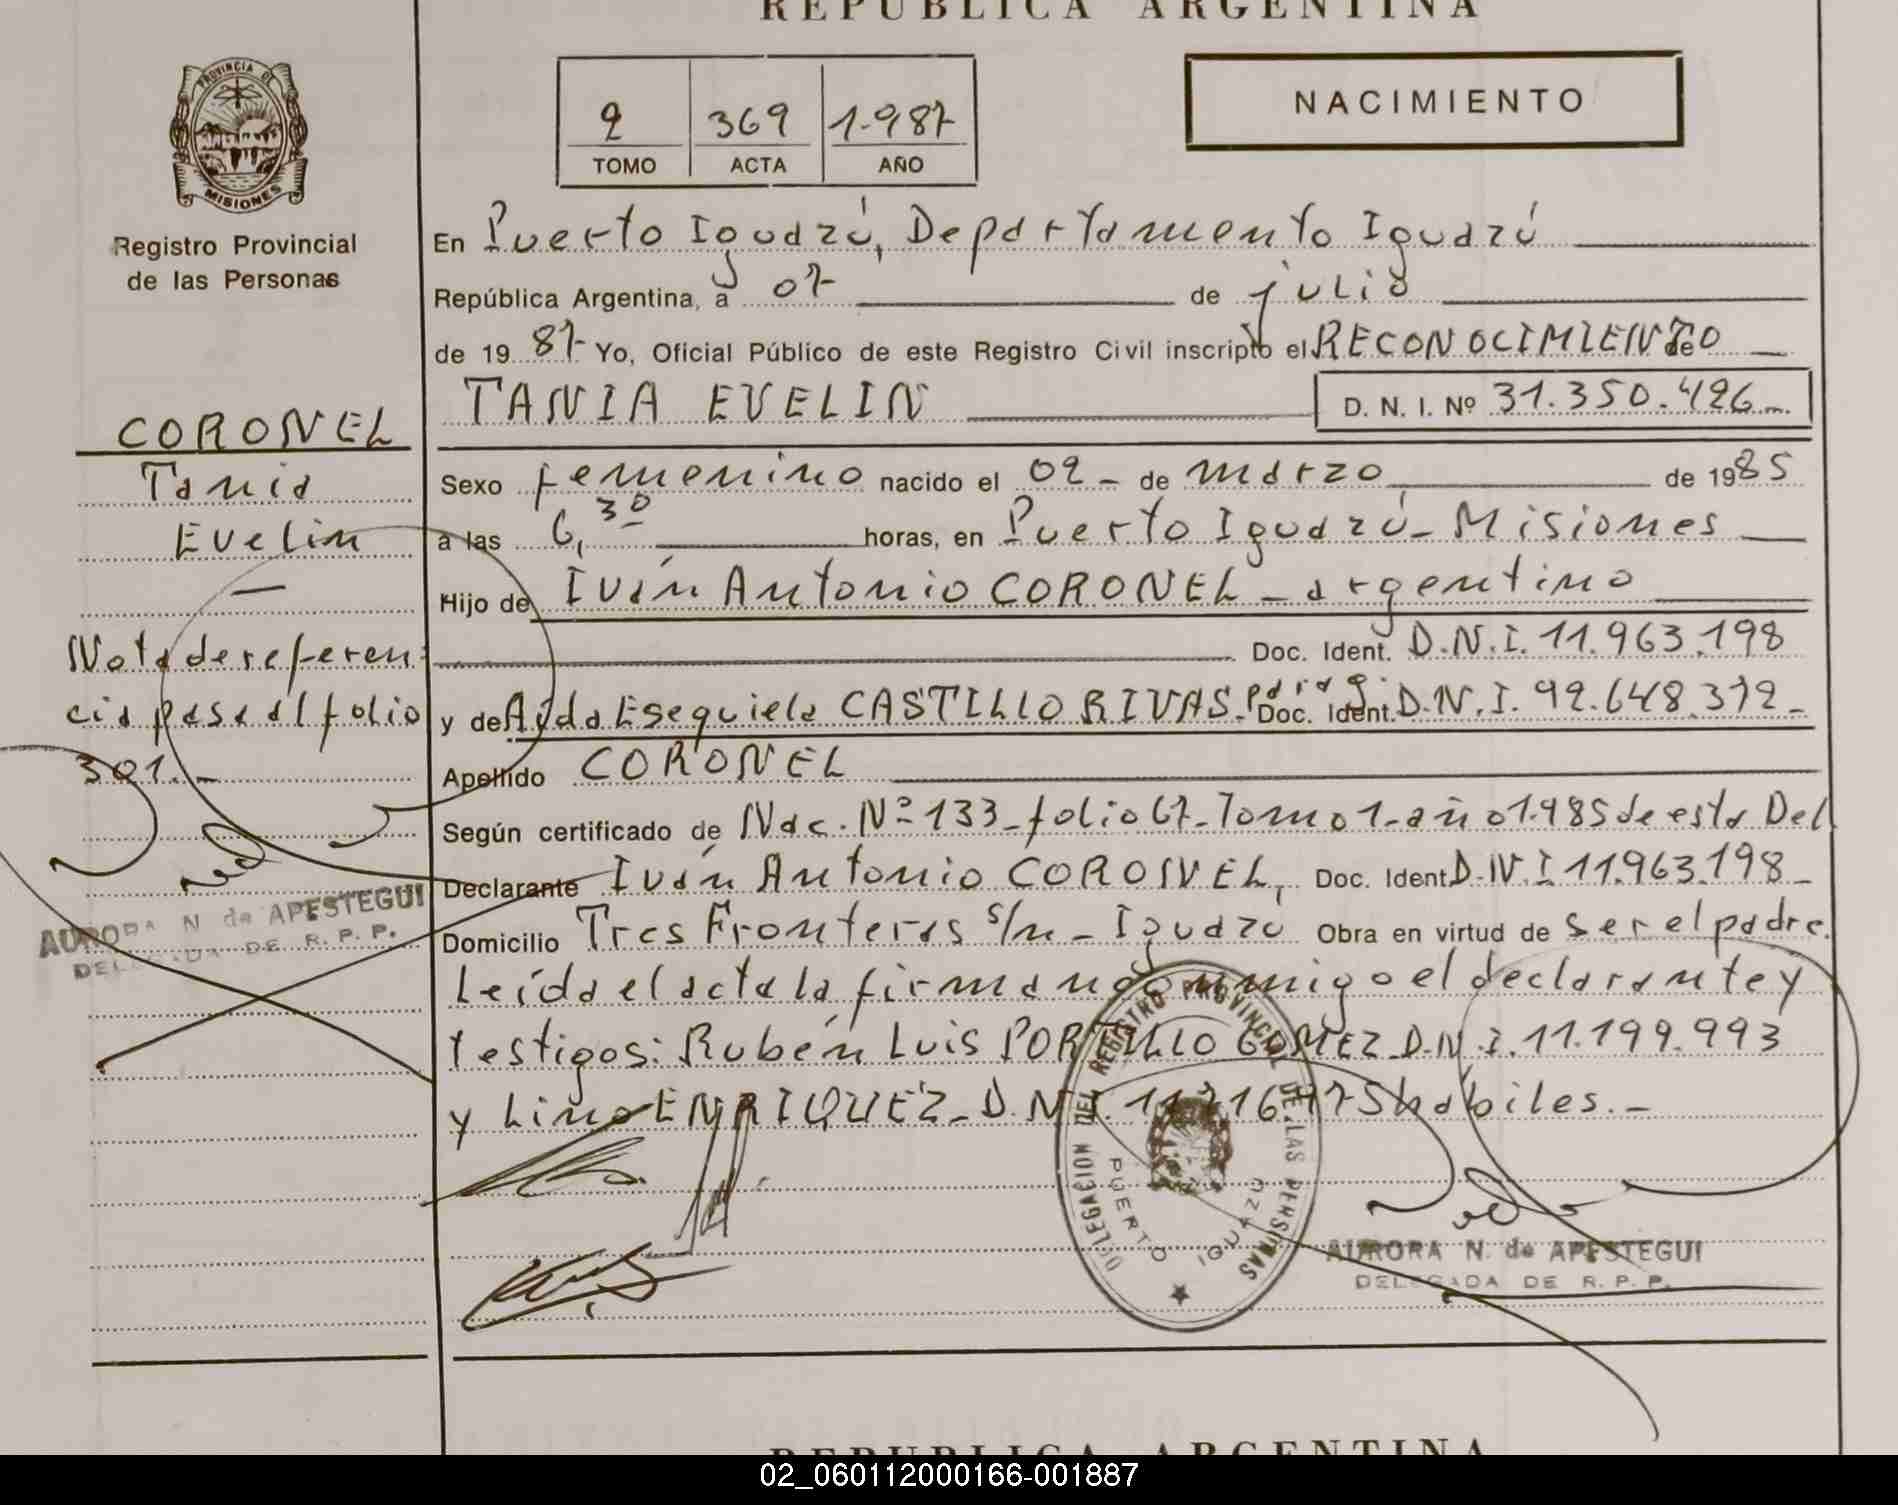 REPUBLICA ARGENTINA
PROVINCIA DE
MISIONES
Registro Provincial
de las Personas
2 369 1.987
TOMO ACTA AÑO
NACIMIENTO
En Puerto Iguazú, Departamento Iguazú
República Argentina, a 07 de julio
de 1987 Yo, Oficial Público de este Registro Civil inscripto el RECONOCIMIENTO de
TANIA EVELIN D. N. I. Nº 31.350.426
Sexo femenino nacido el 02 - de marzo de 1985
a las 6,30 horas, en Puerto Iguazú - Misiones
Hijo de Iván Antonio CORONEL - argentino
Doc. Ident. D.N.I. 11.963.198
y de Aida Esequiela CASTILLO RIVAS - parag. Doc. Ident. D.N.I. 92.648.372 -
Apellido CORONEL
Según certificado de Nac. Nº 133 - folio 67 - Tomo 1 - año 1.985 de esta Del
Declarante Iván Antonio CORONEL, Doc. Ident. D.N.I 11.963.198 -
Domicilio Tres Fronteras s/n - Iguazú Obra en virtud de ser el padre.
Leída el acta la firman conmigo el declarante y
testigos: Rubén Luis PORTILLO GOMEZ D.N.I. 11.199.993
y Lino ENRIQUEZ - D.N.I. hábiles. -
CORONEL
Tania
Evelin
-
Nota de referen
cia pasa al folio
301. -
AURORA N. de APESTEGUI
DELEGADA DE R. P. P.
DELEGACION DEL REGISTRO PROVINCIAL DE LAS PERSONAS
PUERTO IGUAZU
AURORA N. de APESTEGUI
DELEGADA DE R. P. P.
REPUBLICA ARGENTINA
02_060112000166-001887